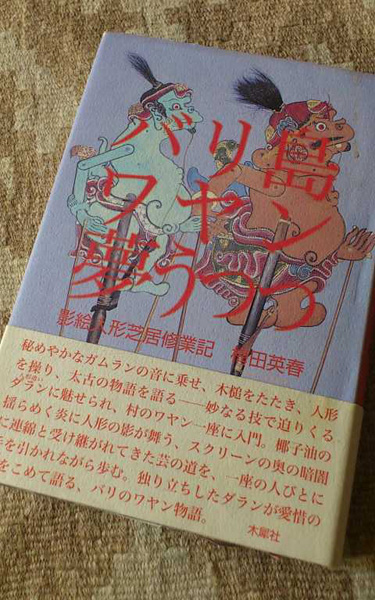 バリ島
ワヤン
夢うつつ
影絵人形芝居修業記 田英春
秘めやかなガムランの音に乗せ、木槌をたたき、人形
を操り、太古の物語を語る——妙なる技で迫りくる
ダランに魅せられ、村のワヤン一座に入門。椰子油の
揺らめく炎に人形の影が舞う、スクリーンの奥の暗闇
に連綿と受け継がれてきた芸の道を、一座の人びとに
手を引かれながら歩む。独り立ちしたダランが愛惜の
をこめて語る、バリのワヤン物語。
木犀社